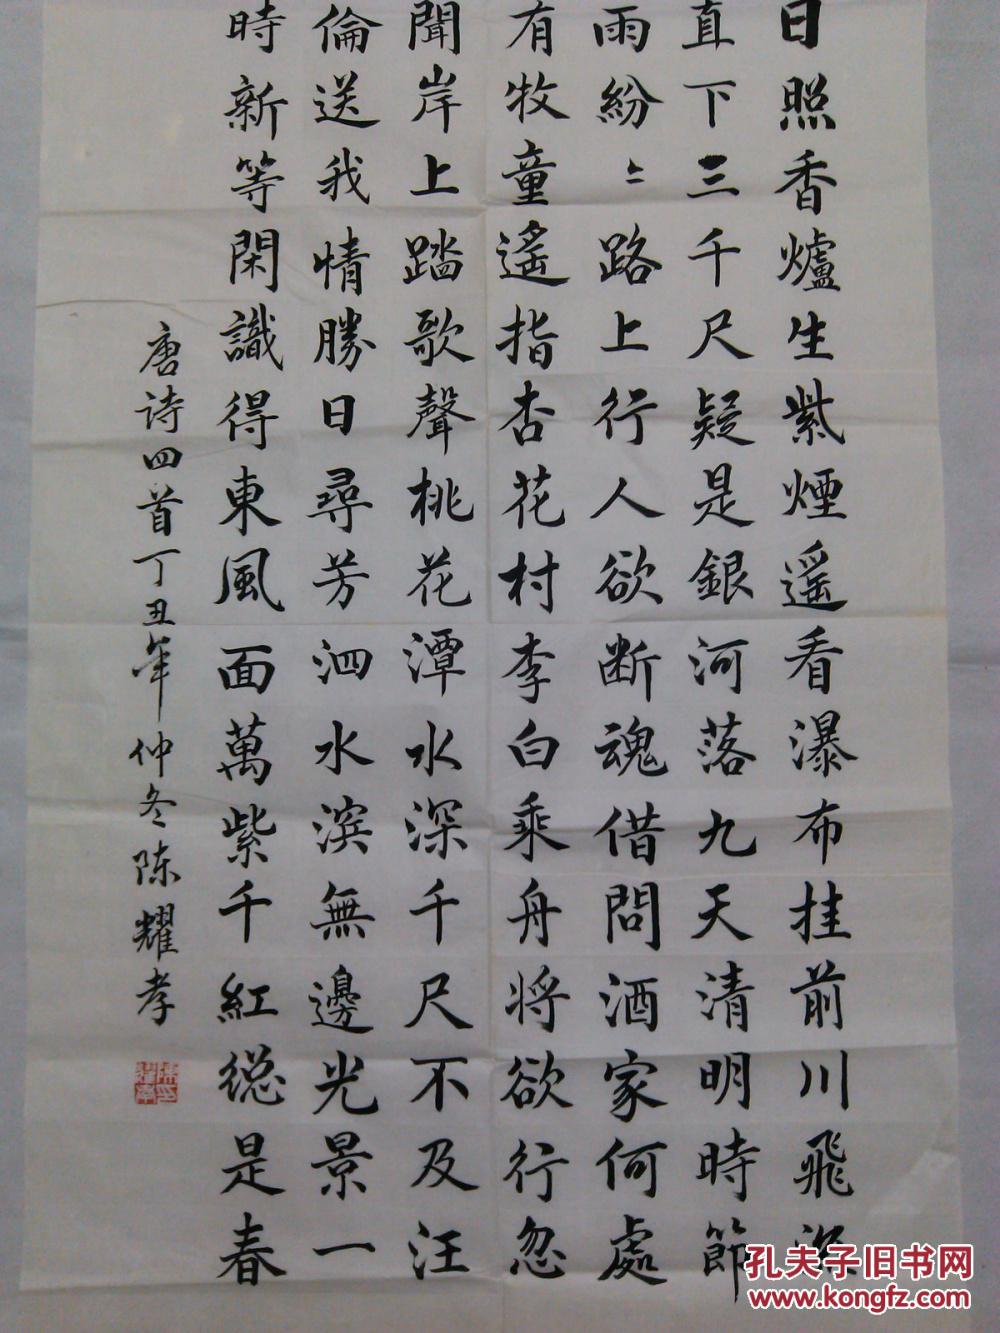 日照香爐生紫煙遥看瀑布挂前川飛流
直下三千尺疑是銀河落九天清明時節
雨紛〻路上行人欲断魂借問酒家何處
有牧童遙指杏花村李白乘舟将欲行忽
聞岸上踏歌聲桃花潭水深千尺不及汪
倫送我情勝日尋芳泗水滨無邊光景一
時新等閑識得東風面萬紫千紅總是春
唐诗四首丁丑年仲冬陈耀孝
孔夫子旧书网
www.kongfz.com